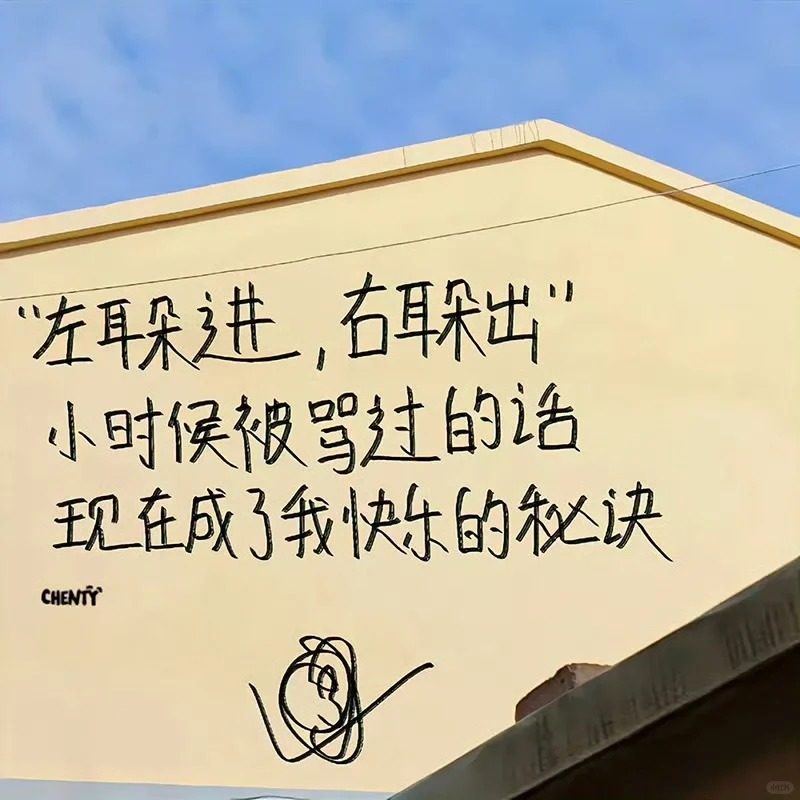 “左耳朵进，右耳朵出”
小时候被骂过的话
现在成了我快乐的秘诀
CHENTY